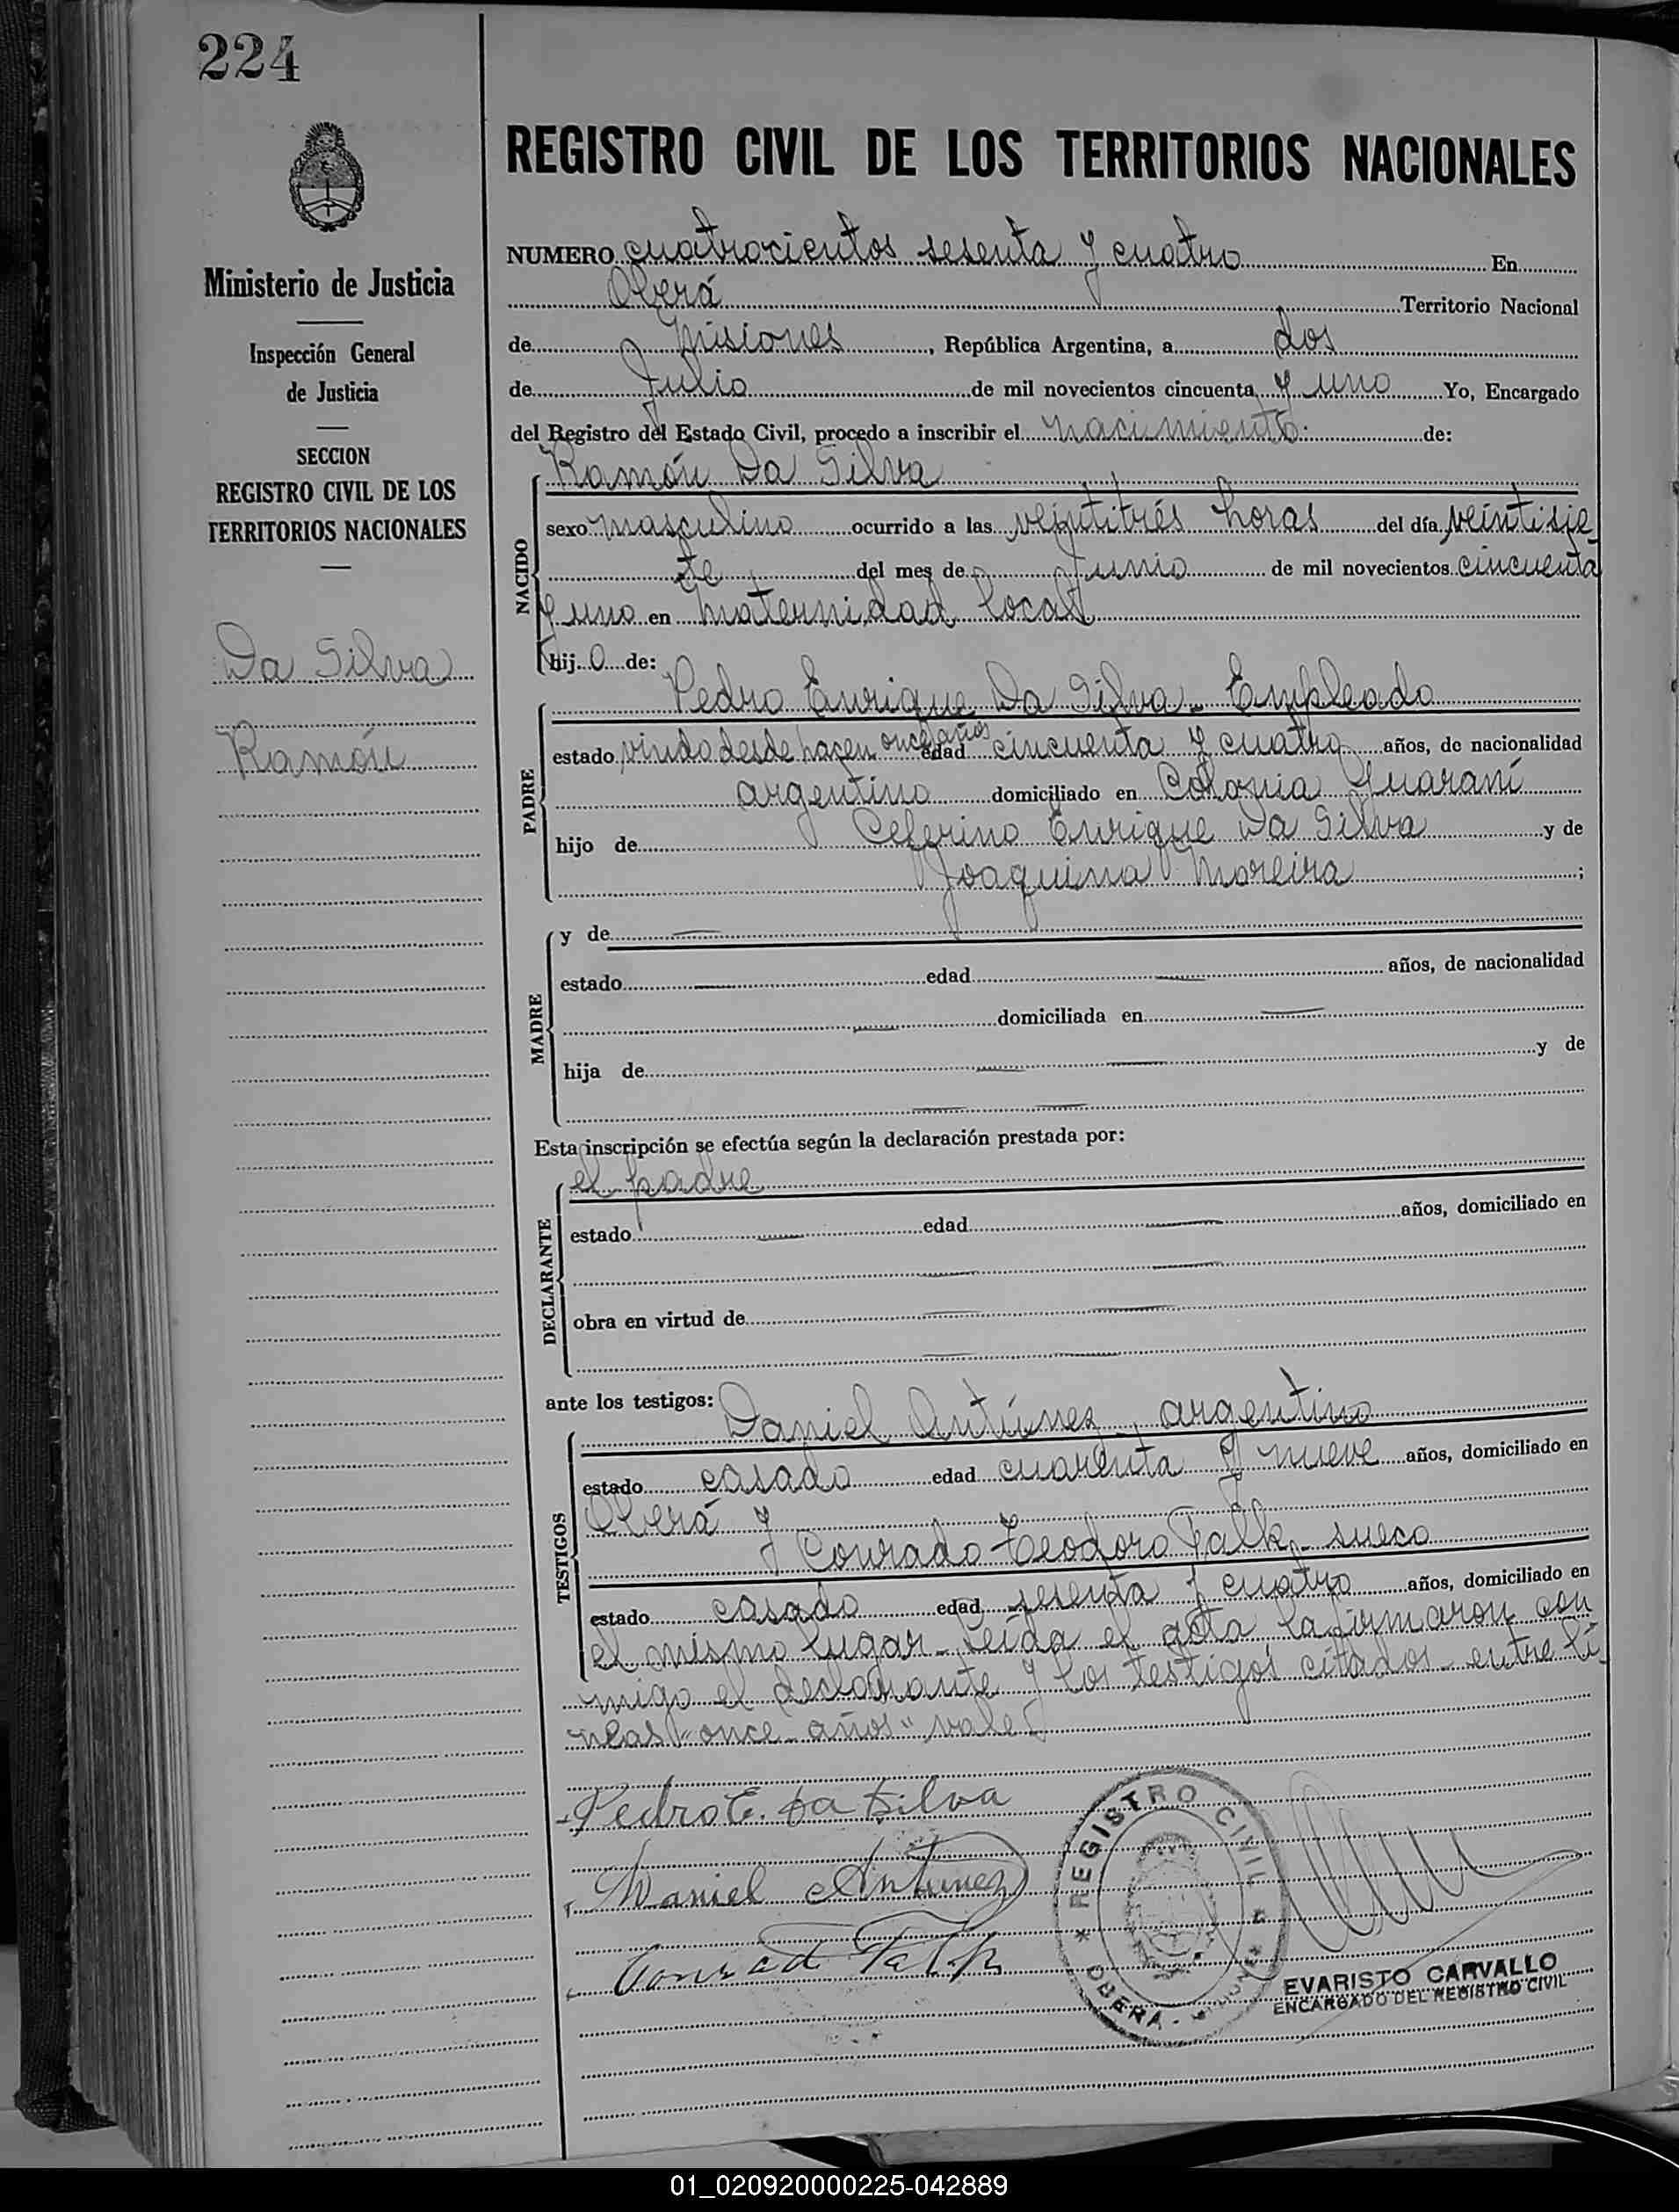 224
Ministerio de Justicia
Inspección General
de Justicia
SECCION
REGISTRO CIVIL DE LOS
TERRITORIOS NACIONALES
Da Silva
Ramón
REGISTRO CIVIL DE LOS TERRITORIOS NACIONALES
NUMERO cuatrocientos sesenta y cuatro En
Oberá Territorio Nacional
de Misiones, República Argentina, a dos
de Julio de mil novecientos cincuenta y uno Yo, Encargado
del Registro del Estado Civil, procedo a inscribir el nacimiento: de:
Ramón Da Silva
NACIDO
sexo masculino ocurrido a las veintitrés horas del día veintisie-
te del mes de Junio de mil novecientos cincuenta
y uno en Maternidad local
hij o de:
Pedro Enrique Da Silva - Empleado
PADRE
estado viudo desde hacen once años edad cincuenta y cuatro años, de nacionalidad
argentino domiciliado en Colonia Guaraní
hijo de Ceferino Enrique Da Silva y de
Joaquina Moreira ;
MADRE
y de
estado edad años, de nacionalidad
domiciliada en
hija de y de
Esta inscripción se efectúa según la declaración prestada por:
el padre
DECLARANTE
estado edad años, domiciliado en
obra en virtud de
ante los testigos:
Daniel Antúnez, argentino
TESTIGOS
estado casado edad cuarenta y nueve años, domiciliado en
Oberá y
Conrado Teodoro Falk - sueco
estado casado edad sesenta y cuatro años, domiciliado en
el mismo lugar - Leída el acta la firmaron con
migo el declarante y los testigos citados - entre lí-
neas "once-años" vale
Pedro E. Da Silva
Daniel Antunez
Conrad Falk
REGISTRO CIVIL
OBERA
EVARISTO CARVALLO
ENCARGADO DEL REGISTRO CIVIL
01_020920000225-042889